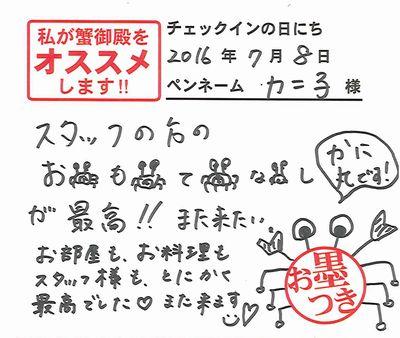 私が蟹御殿を
オススメ
します!!
チェックインの日にち
2016年7月8日
ペンネーム カニ子 様
スタッフの方の
おもてなし
が最高!! また来たい
お部屋も、お料理も
スタッフ様も、とにかく
最高でした♡ また来ます♡
かに
丸です!
お墨つき